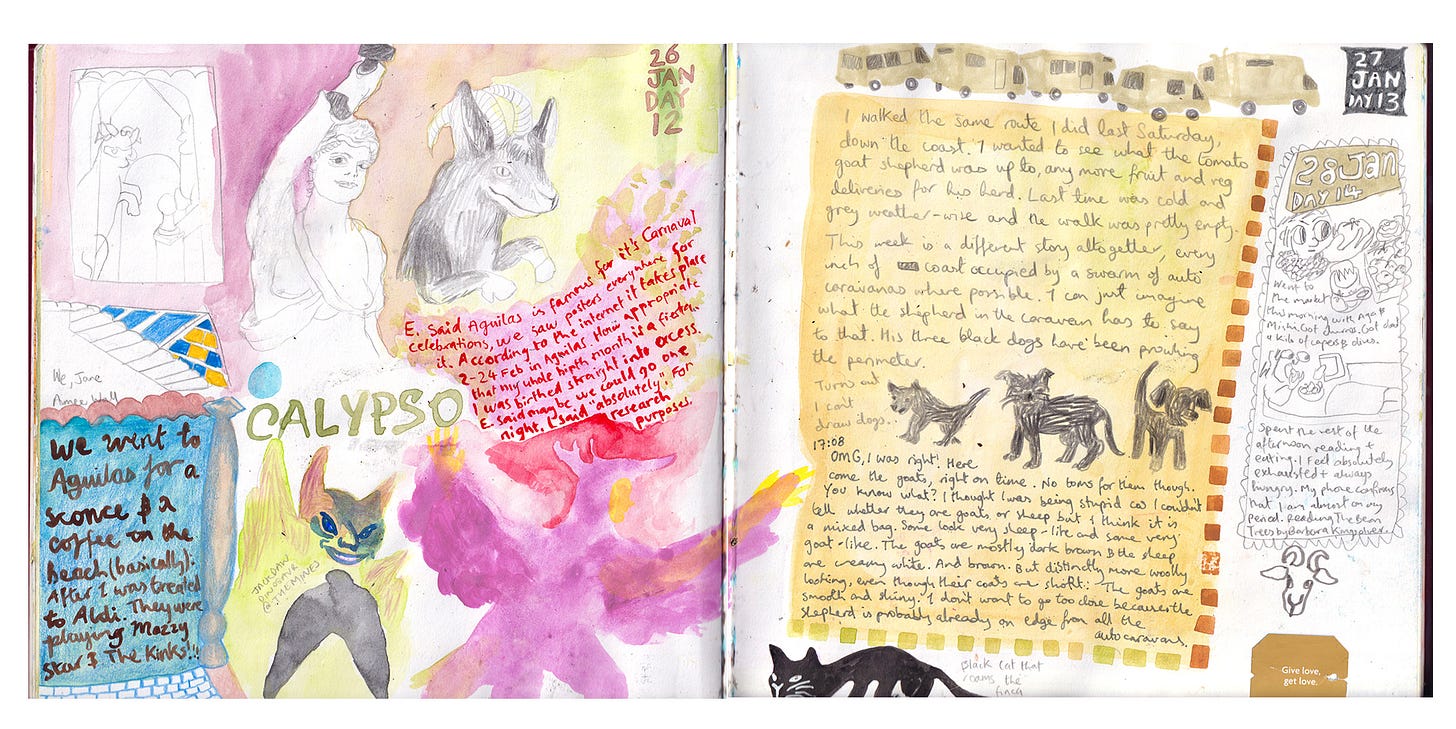 26
JAN
DAY
12
E. Said Aguilas is famous for it's Carnaval
celebrations, we saw posters everywhere for
it. According to the internet it takes place
2-24 Feb in Aguilas. How appropriate
that my whole birth month is a fiesta.
I was birthed straight into excess.
E. said maybe we could go one
night. I said "absolutely". For
research
purposes.
We, Jane
Aimee Wall
CALYPSO
We went to
Aguilas for a
sconce & a
coffee on the
Beach (basically).
After I was treated
to Aldi. They were
playing Mazzy
Star & The Kinks!!!
JACKDAW
DINOSAUR
@ THE MINES
27
JAN
DAY 13
I walked the same route I did last Saturday,
down the coast. I wanted to see what the tomato
goat shepherd was up to, any more fruit and veg
deliveries for his herd. Last time was cold and
grey weather-wise and the walk was pretty empty.
This week is a different story altogether, every
inch of coast occupied by a swarm of auto
caravanas where possible. I can just imagine
what the shepherd in the caravan has to say
to that. His three black dogs have been prowling
the perimeter.
Turns out
I can't
draw dogs.
17:08
OMG, I was right! Here
come the goats, right on time. No toms for them though.
You know what? I thought I was being stupid cos I couldn't
tell whether they are goats or sheep but I think it is
a mixed bag. Some look very sheep-like and some very
goat-like. The goats are mostly dark brown & the sheep
are creamy white. And brown. But distinctly more woolly
looking, even though their coats are short. The goats are
smooth and shiny. I don't want to go too close because the
shepherd is probably already on edge from all the
autocaravans.
Black Cat that
roams the
finca
28 Jan
DAY 14
Went to
the market
this morning with Age &
Mishi. Got churros. Got dad
a kilo of capers & olives.
Spent the rest of the
afternoon reading +
eating. I feel absolutely
exhausted + always
hungry. My phone confirms
that I am almost on my
period. Reading The Bean
Trees by Barbara Kingsolver.
Give love,
get love.